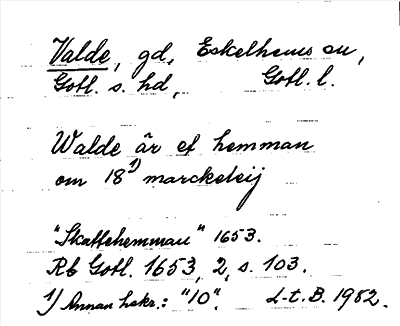 Valde, gd, Eskelhems sn,
Gotl. s. hd, Gotl. l.
Walde är et hemman
om 18 1) marckeleij
"Skattehemman" 1653.
Rb Gotl. 1653, 2, s. 103.
1) Annan hskr.: "10". L-t. B. 1952.